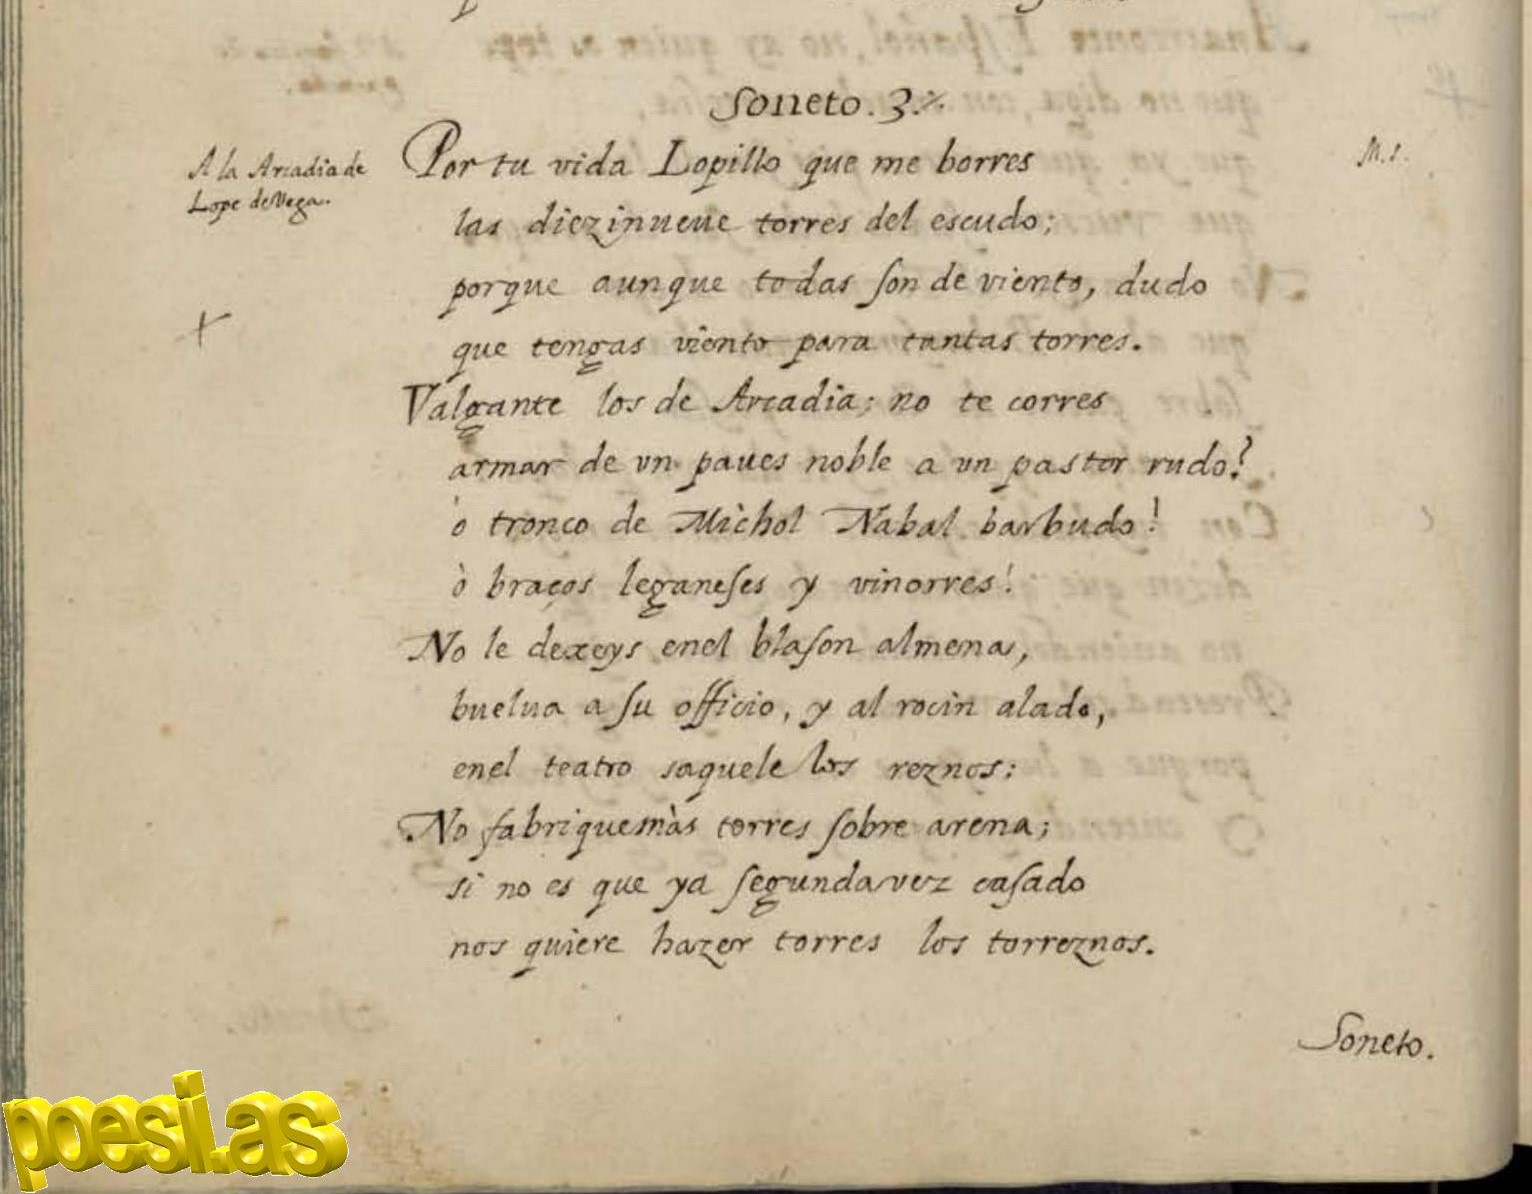 Soneto. 3.
A la Arcadia de
Lope de Vega.
M. S.
Por tu vida Lopillo que me borres
las diezinueue torres del escudo;
porque aunque todas son de viento, dudo
que tengas viento para tantas torres.
Valgante los de Arcadia; no te corres
armar de vn paues noble a vn pastor rudo?
ò tronco de Michol Nabal barbudo!
ò braços leganeses y vinorres!
No le dexeys enel blason almena,
buelua a su officio, y al rocin alado,
enel teatro saquele los reznos:
No fabrique màs torres sobre arena;
si no es que ya segunda vez casado
nos quiere hazer torres los torreznos.
Soneto.
poesi.as